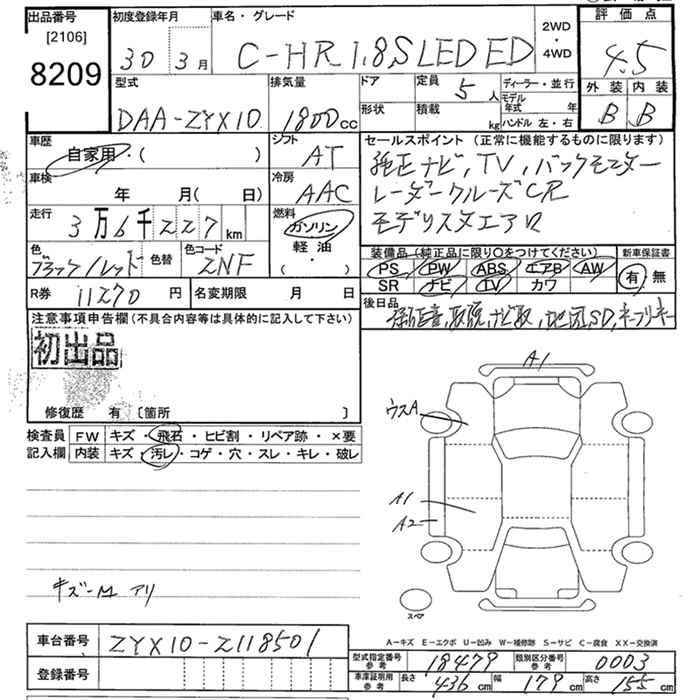 出品番号
[2106]
8209
初度登録年月
30 3月
車名・グレード
C-HR 1.8S LED ED
2WD
・
4WD
評価点
4.5
外装 内装
B B
型式
DAA-ZYX10
排気量
1800cc
ドア
形状
定員
5人
積載
kg
ディーラー・並行
モデル年式 年
ハンドル 左・右
車歴
自家用・( )
シフト
AT
車検
年 月( 日)
冷房
AAC
走行
3万6千227km
燃料
ガソリン
軽油
( ・ )
色
ブラック/レッド
色替
色コード
ZNF
R券
11270円
名変期限 月 日
セールスポイント(正常に機能するものに限ります)
純正ナビ,TV,バックモニター
レーダークルーズCR
モデリスタエアロ
装備品(純正品に限り○をつけてください)
新車保証書
PS PW ABS エアB AW
SR ナビ TV カワ
有 無
後日品
保証書,取説,ナビ取,地図SD,キーフリーキー
注意事項申告欄(不具合内容等は具体的に記入して下さい)
初出品
修復歴 有〔箇所 〕
検査員
記入欄
FW キズ・飛石・ヒビ割・リペア跡・×要
内装 キズ・汚レ・コゲ・穴・スレ・キレ・破レ
キズーM アリ
A1
ウスA
A1
A2
スペア
A-キズ E-エクボ U-凹み W-補修跡 S-サビ C-腐食 XX-交換済
車台番号
ZYX10-2118501
登録番号
型式指定番号
参考
18479
類別区分番号
参考
0003
車庫証明用
参考
長さ 436cm 幅 179cm 高さ 155cm